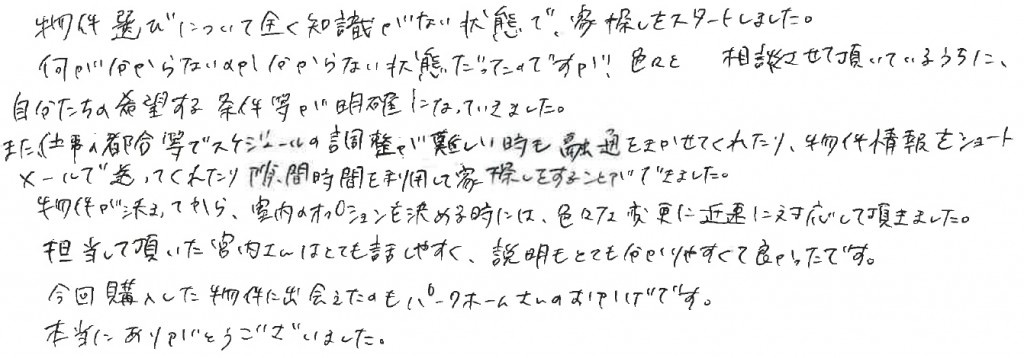 物件選びについて全く知識がない状態で、家探しをスタートしました。
何が分からないのかし分からない状態だったのですが、色々と 相談させて頂いているうちに、
自分たちの希望する条件等が明確になっていきました。
また、仕事の都合等でスケジュールの調整が難しい時も融通をきかせてくれたり、物件情報をショート
メールで送ってくれたり隙間時間を利用して家探しをすることができました。
物件が決まってから、室内のオプションを決める時には、色々な変更に迅速に対応して頂きました。
担当して頂いた宮内さんはとても話しやすく、説明もとても分かりやすくて良かったです。
今回購入した物件に出会えたのもパークホームさんのおかげです。
本当にありがとうございました。